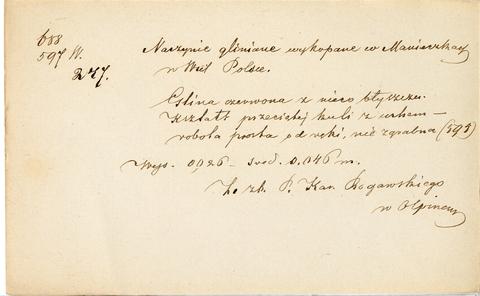 658
597 W.
247.
Naczynie gliniane wykopane w Manieczkach
w Wiel Polsce.
Glina czerwona z nieco błyszczu.
Kształt przeciętej kuli z uchem —
robota prosta od ręki, nie zgrabna (595)
Wys. 0,026 – sred. 0.046 m.
Ze zb. P. Kar. Rogawskiego
w Ołpinach